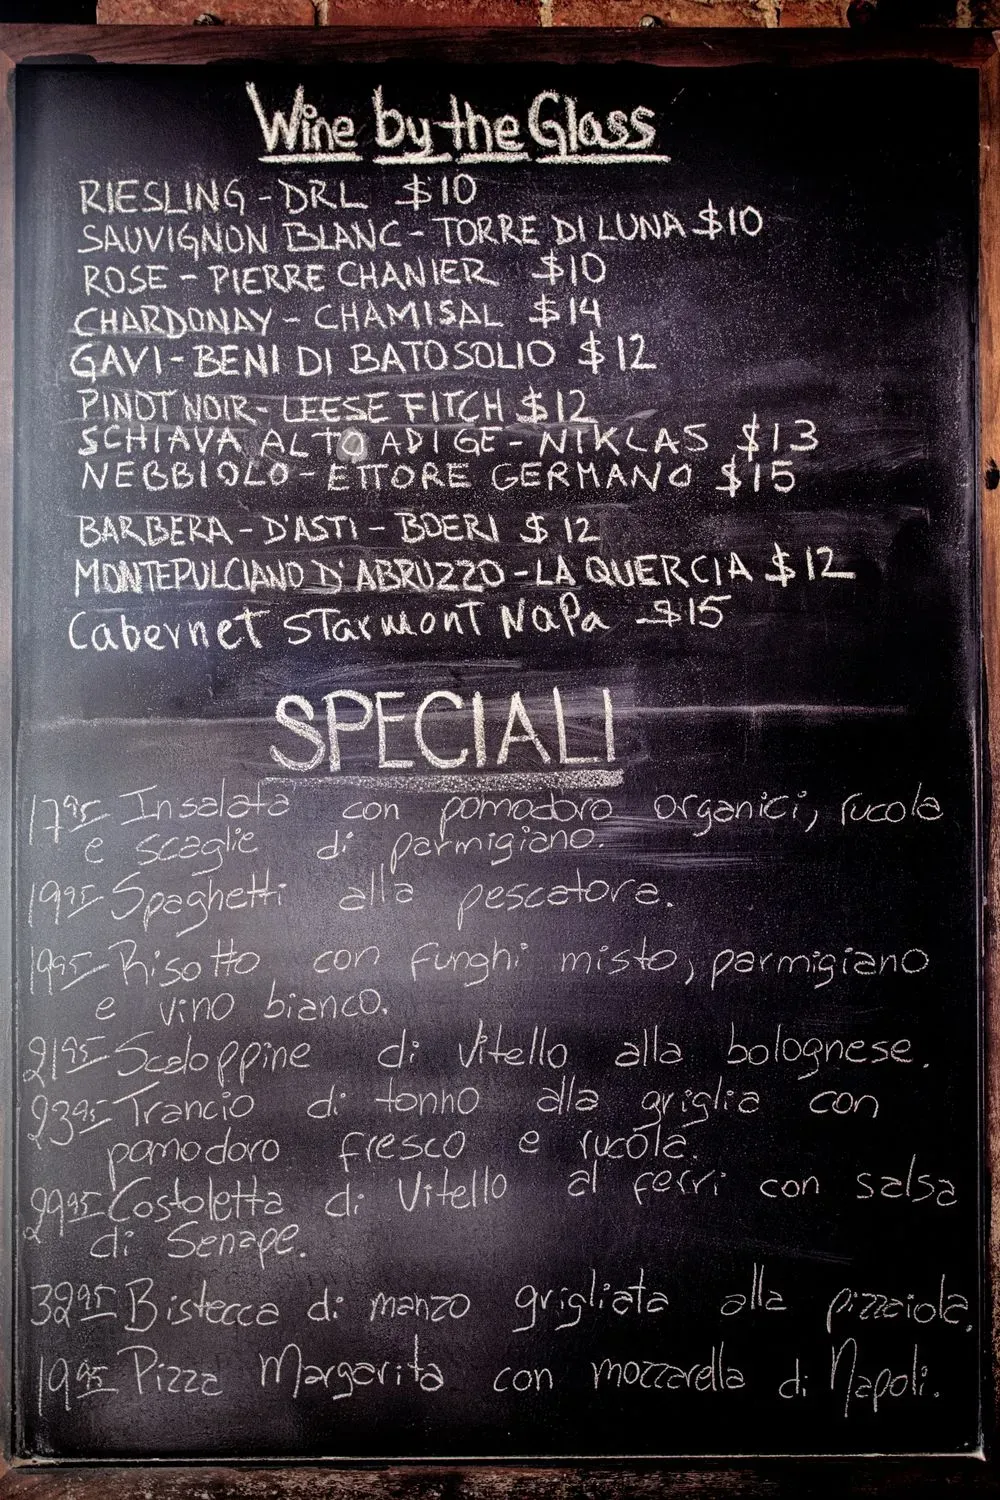 Wine by the Glass
RIESLING - DRL $10
SAUVIGNON BLANC - TORRE DI LUNA $10
ROSE - PIERRE CHANIER $10
CHARDONAY - CHAMISAL $14
GAVI - BENI DI BATOSOLIO $12
PINOT NOIR - LEESE FITCH $12
SCHIAVA ALTO ADIGE - NIKLAS $13
NEBBIOLO - ETTORE GERMANO $15
BARBERA - D'ASTI - BOERI $12
MONTEPULCIANO D'ABRUZZO - LA QUERCIA $12
Cabernet Starmont Napa $15
SPECIALI
17.95 Insalata con pomodoro organici, rucola
e scaglie di parmigiano.
19.95 Spaghetti alla pescatora.
19.95 Risotto con funghi misto, parmigiano
e vino bianco.
21.95 Scaloppine di Vitello alla bolognese.
23.95 Trancio di tonno alla griglia con
pomodoro fresco e rucola.
29.95 Costoletta di Vitello al ferri con salsa
di Senape.
32.95 Bistecca di manzo grigliata alla pizzaiola.
19.95 Pizza Margarita con mozzarella di Napoli.